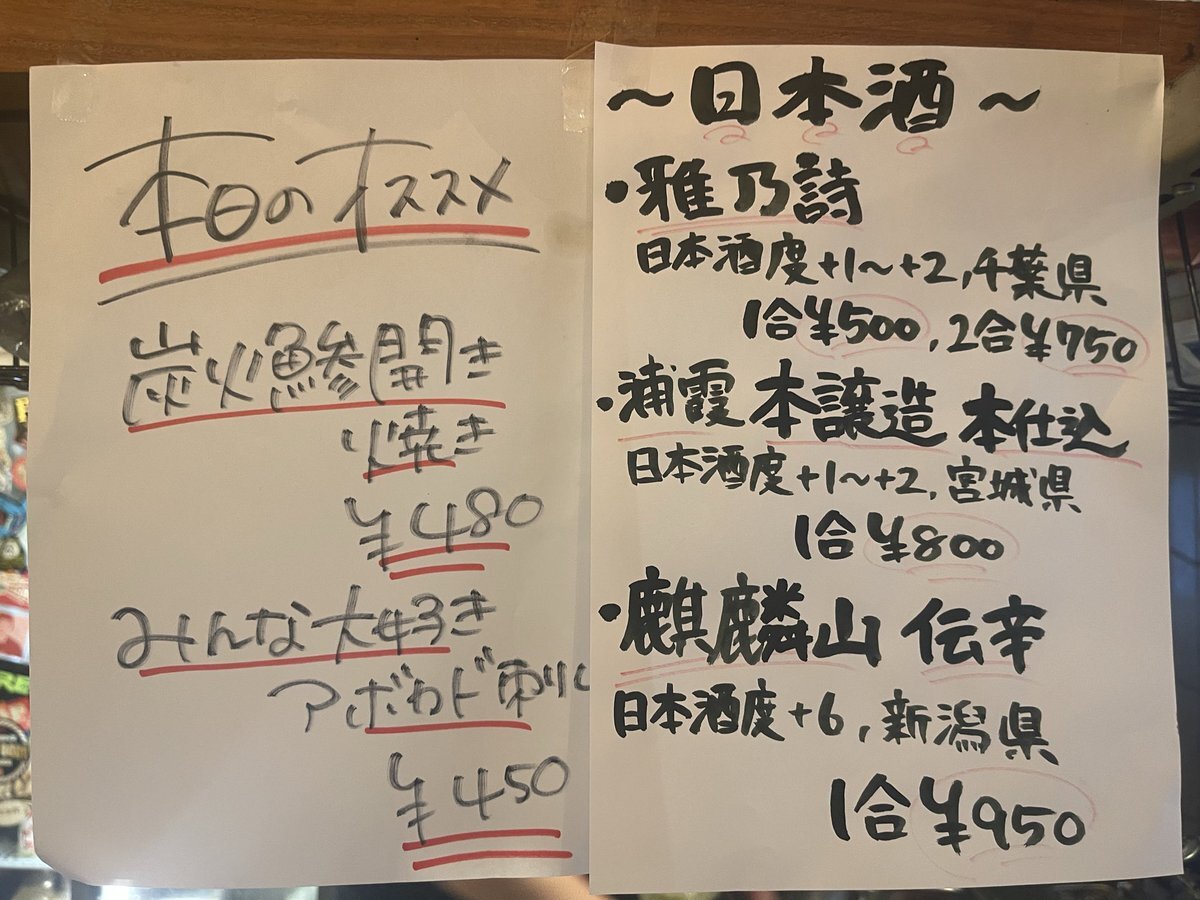 本日のオススメ
炭火鯵開き
焼き
¥480
みんな大好き
アボカド刺し
¥450
~日本酒~
・雅乃詩
日本酒度+1~+2,千葉県
1合¥500,2合¥750
・浦霞 本譲造 本仕込
日本酒度+1~+2,宮城県
1合¥800
・麒麟山 伝辛
日本酒度+6,新潟県
1合¥950